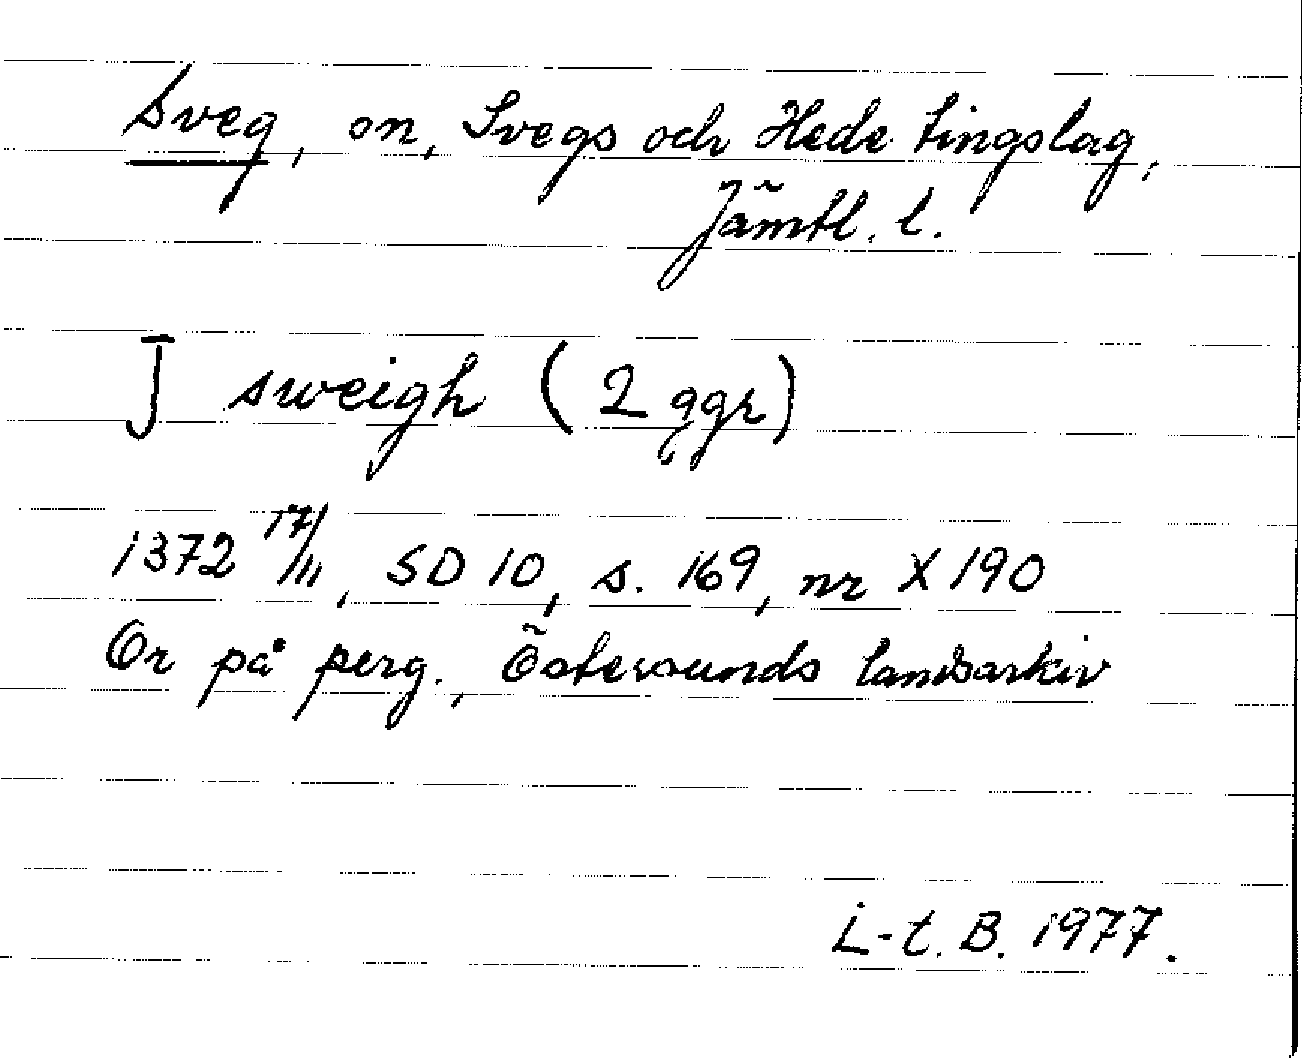 Sveg, on, Svegs och Hede tingslag,
Jämtl. l.
J sweigh (2 ggr)
1372 17/III, SD 10, s. 169, nr X 190
Or på perg., Östersunds landsarkiv
L-t. B. 1977.